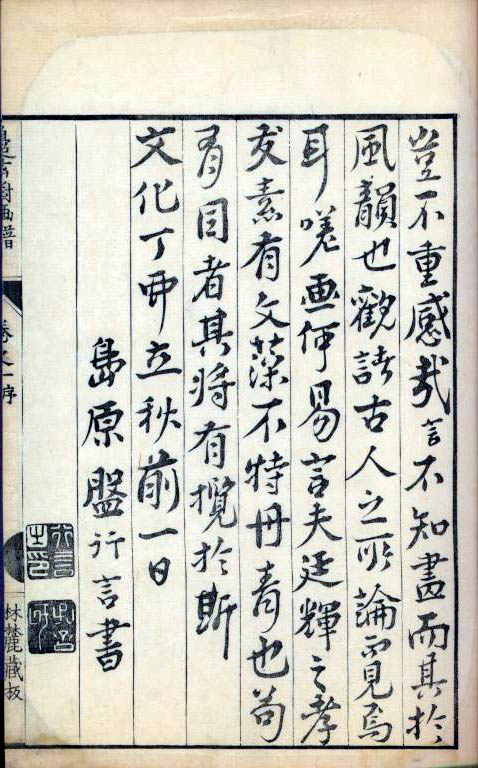 豈不重感哉言不知畫而其於
風韻也觀諸古人之所論覔焉
耳嗟画何易言夫廷輝之孝
友素有文藻不特丹青也苟
有目者其將有攬於斯
文化丁卯立秋前一日
島原盤行言書
画譜
卷之一 序
林麓藏板